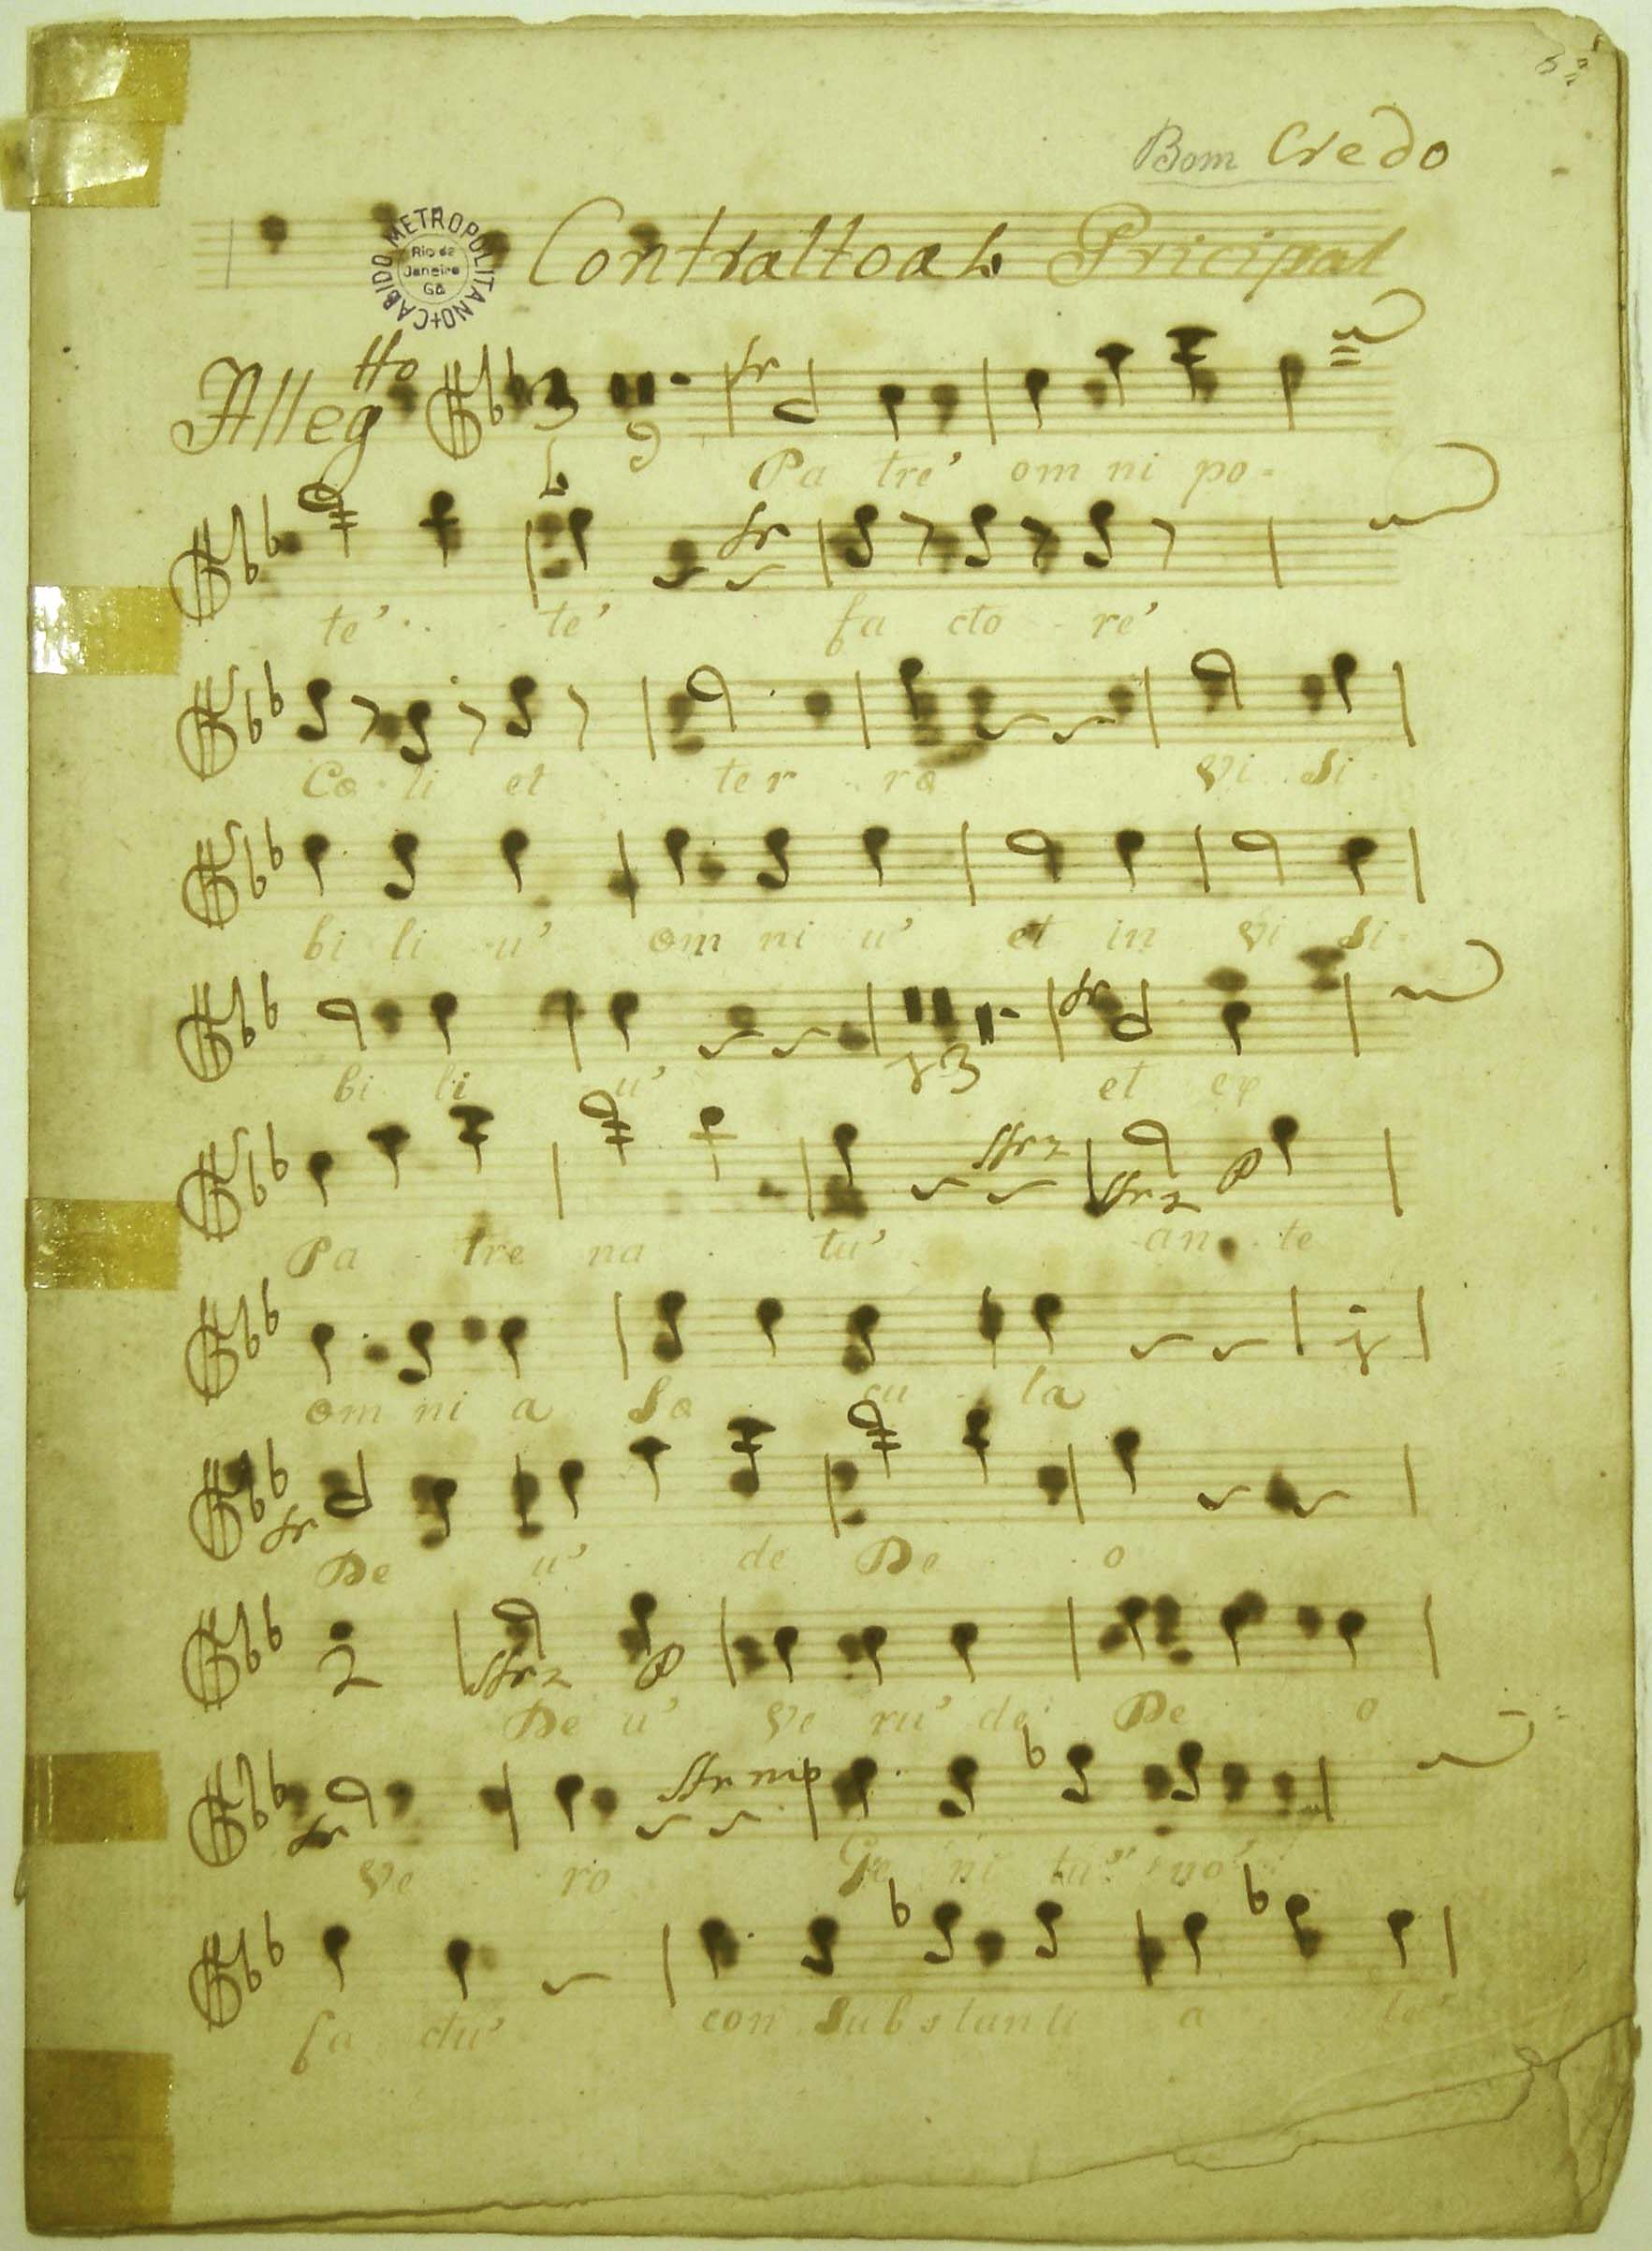 Bom Credo
CABIDO METROPOLITANO
Rio de Janeiro
Gb
Contralto a 4. Pricipal
Allegtto 3 9
Pa tre' om ni po-
te' te' fa cto re'
Cœ li et ter ræ vi si
bi li u' om ni u' et in vi si
bi li u' 13 et ex
Pa tre na tu' an te
om ni a Sæ cu la
De u' de De o
2 De u' ve ru' de De o
ve ro Ge ni tu' no'
fa ctu' con substanti a le'